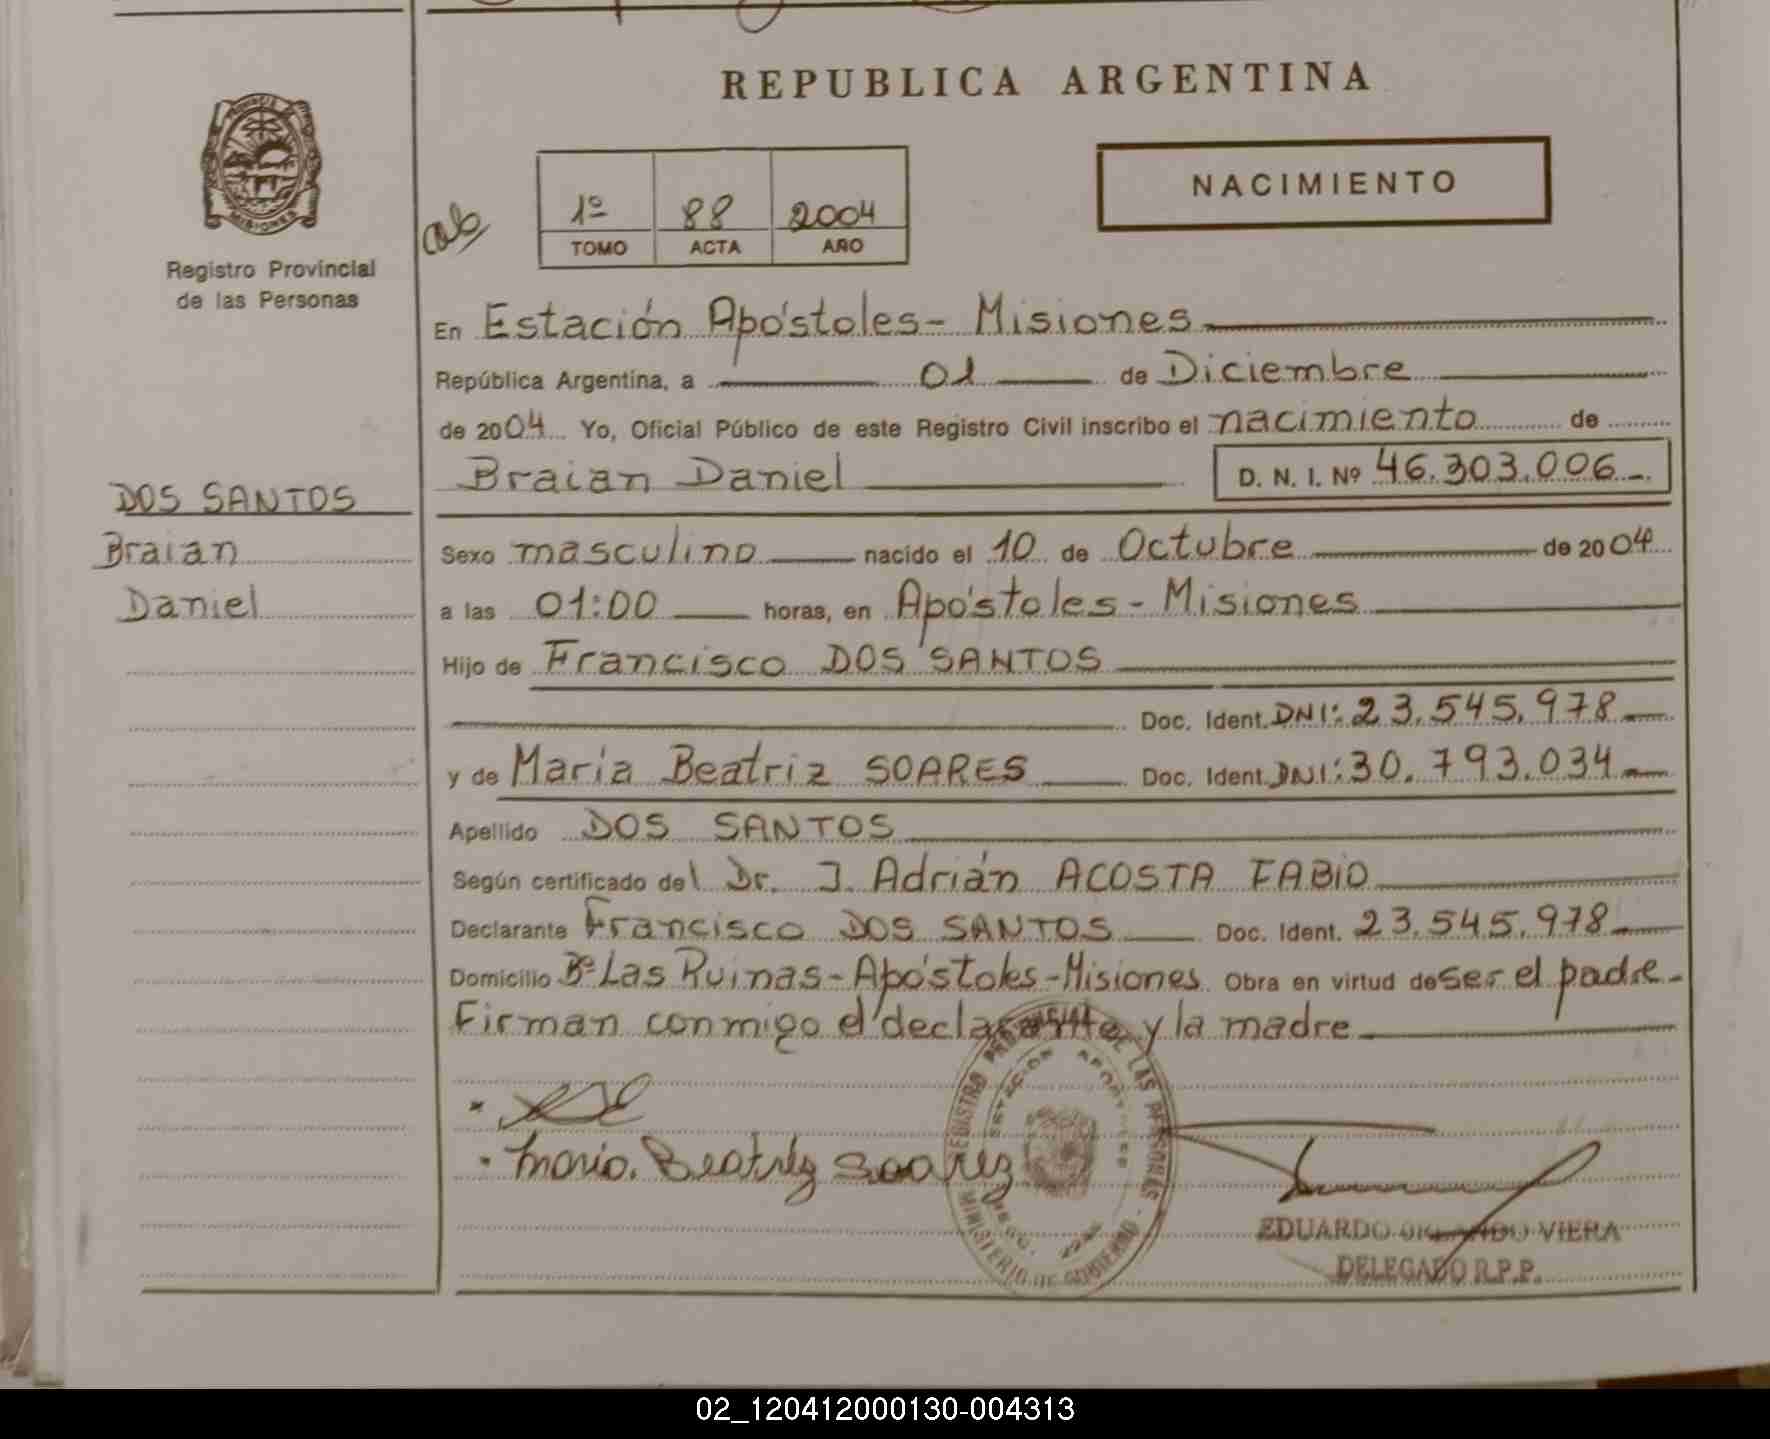 REPUBLICA ARGENTINA
NACIMIENTO
1º 88 2004
TOMO ACTA AÑO
Registro Provincial
de las Personas
MISIONES
En Estación Apóstoles - Misiones
República Argentina, a 01 de Diciembre
de 2004 Yo, Oficial Público de este Registro Civil inscribo el nacimiento de
Braian Daniel D. N. I. Nº 46.303.006
DOS SANTOS
Braian
Daniel
Sexo masculino nacido el 10 de Octubre de 2004
a las 01:00 horas, en Apóstoles - Misiones
Hijo de Francisco DOS SANTOS
Doc. Ident. DNI: 23.545.978
y de María Beatriz SOARES Doc. Ident. DNI: 30.793.034
Apellido DOS SANTOS
Según certificado del Dr. J. Adrián ACOSTA FABIO
Declarante Francisco DOS SANTOS Doc. Ident. 23.545.978
Domicilio Bº Las Ruinas - Apóstoles - Misiones Obra en virtud de ser el padre
Firman conmigo el declarante y la madre
Beatriz Soarez
REGISTRO PROVINCIAL DE LAS PERSONAS
MINISTERIO DE GOBIERNO
EDUARDO ORLANDO VIERA
DELEGADO R.P.P.
02_120412000130-004313